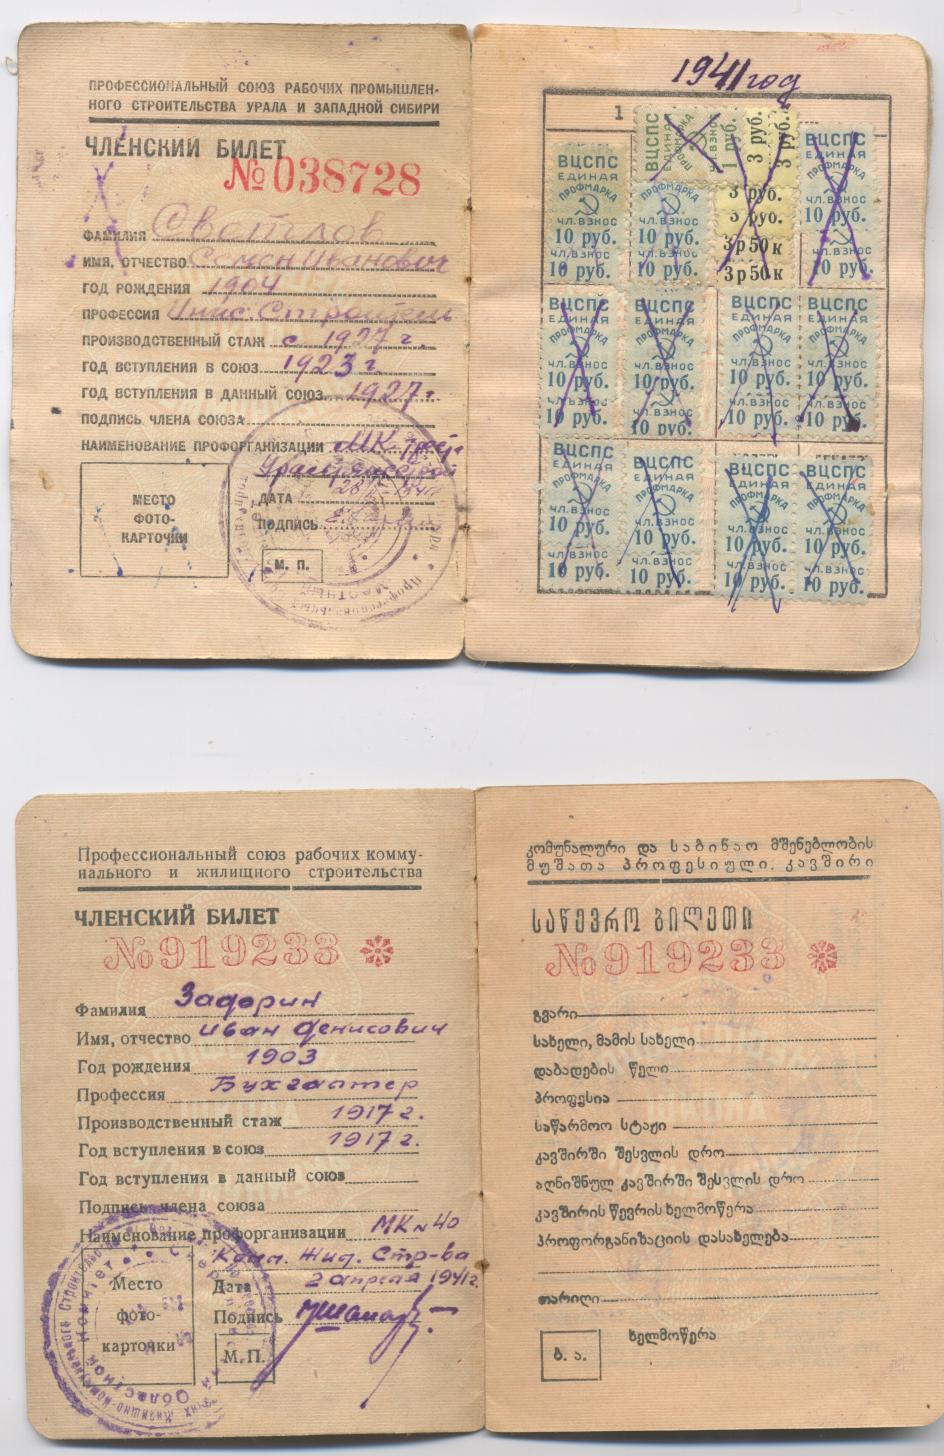 ПРОФЕССИОНАЛЬНЫЙ СОЮЗ РАБОЧИХ ПРОМЫШЛЕН-
НОГО СТРОИТЕЛЬСТВА УРАЛА И ЗАПАДНОЙ СИБИРИ
ЧЛЕНСКИЙ БИЛЕТ
№ 038728
ФАМИЛИЯ
ИМЯ, ОТЧЕСТВО Семен Иванович
ГОД РОЖДЕНИЯ 1904
ПРОФЕССИЯ Инж. Строитель
ПРОИЗВОДСТВЕННЫЙ СТАЖ с 1927 г.
ГОД ВСТУПЛЕНИЯ В СОЮЗ 1923 г.
ГОД ВСТУПЛЕНИЯ В ДАННЫЙ СОЮЗ 1927 г.
ПОДПИСЬ ЧЛЕНА СОЮЗА
НАИМЕНОВАНИЕ ПРОФОРГАНИЗАЦИИ МК
ДАТА
ПОДПИСЬ
МЕСТО
ФОТО-
КАРТОЧКИ
М. П.
1941 год
1
ВЦСПС ЕДИНАЯ ПРОФМАРКА ЧЛ.ВЗНОС 10 руб. ЧЛ.ВЗНОС 10 руб.
ВЦСПС ЕДИНАЯ ПРОФМАРКА ЧЛ.ВЗНОС руб.
ПРОФМАРКА ЧЛ.ВЗНОС 10 руб. ЧЛ.ВЗНОС 10 руб.
3 руб.
3 руб.
3 руб.
3 руб.
3 р 50 к
3 р 50 к
ВЦСПС ЕДИНАЯ ПРОФМАРКА ЧЛ.ВЗНОС 10 руб. ЧЛ.ВЗНОС 10 руб.
ВЦСПС ВЦСПС ВЦСПС ВЦСПС
ЕДИНАЯ ЕДИНАЯ ЕДИНАЯ ЕДИНАЯ
ПРОФМАРКА ПРОФМАРКА ПРОФМАРКА ПРОФМАРКА
ЧЛ.ВЗНОС ЧЛ.ВЗНОС ЧЛ.ВЗНОС ЧЛ.ВЗНОС
10 руб. 10 руб. 10 руб. 10 руб.
ЧЛ.ВЗНОС ЧЛ.ВЗНОС ЧЛ.ВЗНОС ЧЛ.ВЗНОС
10 руб. 10 руб. 10 руб. 10 руб.
ВЦСПС ВЦСПС ВЦСПС ВЦСПС
ЕДИНАЯ ЕДИНАЯ ЕДИНАЯ ЕДИНАЯ
ПРОФМАРКА ПРОФМАРКА ПРОФМАРКА ПРОФМАРКА
ЧЛ.ВЗНОС ЧЛ.ВЗНОС ЧЛ.ВЗНОС ЧЛ.ВЗНОС
10 руб. 10 руб. 10 руб. 10 руб.
ЧЛ.ВЗНОС ЧЛ.ВЗНОС ЧЛ.ВЗНОС ЧЛ.ВЗНОС
10 руб. 10 руб. 10 руб. 10 руб.
Профессиональный союз рабочих комму-
нального и жилищного строительства
ЧЛЕНСКИЙ БИЛЕТ
№ 919233
Фамилия Задорин
Имя, отчество Иван Денисович
Год рождения 1903
Профессия Бухгалтер
Производственный стаж 1917 г.
Год вступления в союз 1917 г.
Год вступления в данный союз
Подпись члена союза
Наименование профорганизации МК № 40
Комм. Жил. Стр-ва
Дата 2 апреля 1941 г.
Подпись
Место
фото-
карточки
М. П.
კომუნალური და საბინაო მშენებლობის
მუშათა პროფესიული. კავშირი
საწევრო ბილეთი
№ 919233
გვარი
სახელი, მამის სახელი
დაბადების წელი
პროფესია
საწარმოო სტაჟი
კავშირში შესვლის დრო
აღნიშნულ კავშირში შესვლის დრო
კავშირის წევრის ხელმოწერა
პროფორგანიზაციის დასახელება
თარიღი
ხელმოწერა
ბ. ა.